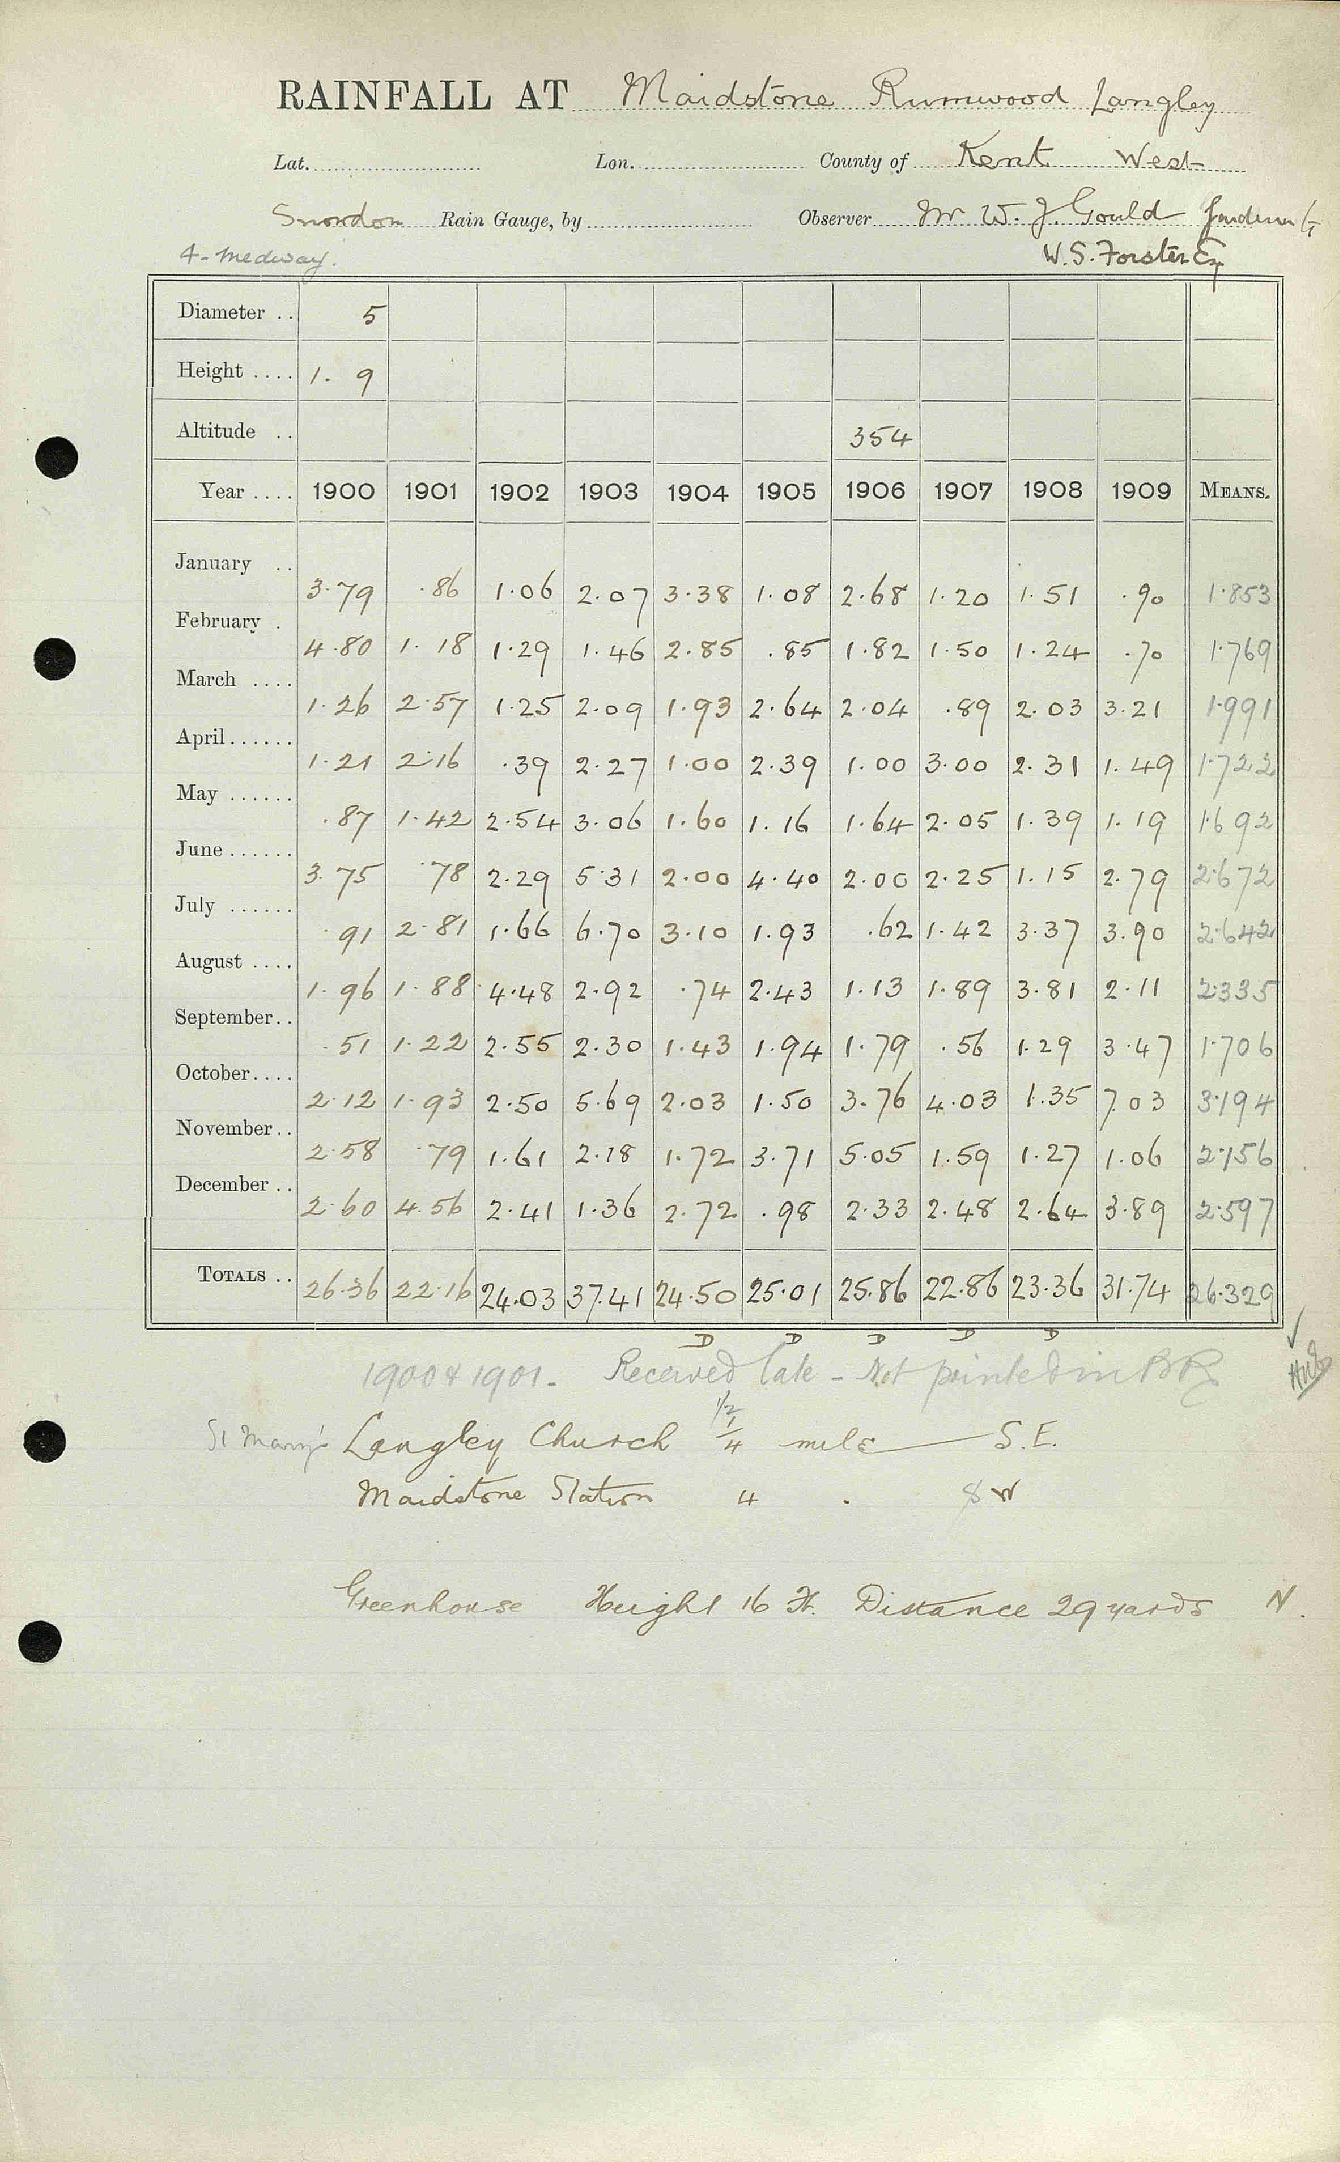 RAINFALL AT Maidstone Rumwood Langley
Lat. Lon. County of Kent West
Snowdon Rain Gauge, by Observer Mr W. J. Gould Gardener to
4 - Medway. W. S. Forster Esq
Diameter .. 5
Height .... 1. 9
Altitude .. 354
Year .... 1900 1901 1902 1903 1904 1905 1906 1907 1908 1909 MEANS.
January .. 3.79 .86 1.06 2.07 3.38 1.08 2.68 1.20 1.51 .90 1.853
February . 4.80 1.18 1.29 1.46 2.85 .85 1.82 1.50 1.24 .70 1.769
March .... 1.26 2.57 1.25 2.09 1.93 2.64 2.04 .89 2.03 3.21 1.991
April ...... 1.21 2.16 .39 2.27 1.00 2.39 1.00 3.00 2.31 1.49 1.722
May ...... .87 1.42 2.54 3.06 1.60 1.16 1.64 2.05 1.39 1.19 1.692
June ...... 3.75 .78 2.29 5.31 2.00 4.40 2.00 2.25 1.15 2.79 2.672
July ...... .91 2.81 1.66 6.70 3.10 1.93 .62 1.42 3.37 3.90 2.642
August .... 1.96 1.88 4.48 2.92 .74 2.43 1.13 1.89 3.81 2.11 2.335
September .. .51 1.22 2.55 2.30 1.43 1.94 1.79 .56 1.29 3.47 1.706
October .... 2.12 1.93 2.50 5.69 2.03 1.50 3.76 4.03 1.35 7.03 3.194
November .. 2.58 .79 1.61 2.18 1.72 3.71 5.05 1.59 1.27 1.06 2.156
December .. 2.60 4.56 2.41 1.36 2.72 .98 2.33 2.48 2.64 3.89 2.597
TOTALS .. 26.36 22.16 24.03 37.41 24.50 25.01 25.86 22.86 23.36 31.74 26.329
D D D D D
1900 & 1901. Received late - Not printed in BR
1/2
St Mary's Langley Church 1/4 mile S.E.
Maidstone Station 4 . W
Greenhouse Height 16 ft. Distance 29 yards N.